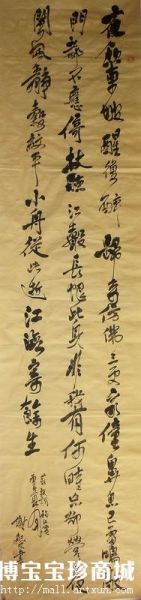 夜飲東坡醒復醉歸來仿佛三更家僮鼻息已雷鳴敲
門都不應倚杖聽江聲長恨此身非我有何時忘却營營
闌風靜縠紋平小舟從此逝江海寄餘生
博宝宝珍商城
http://mall.artxun.com